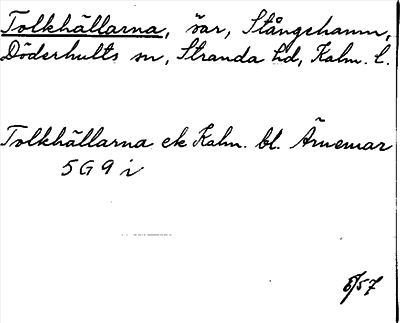 Tolkhällarna, öar, Stångehamn,
Döderhults sn, Stranda hd, Kalm. l.
Tolkhällarna ek Kalm. bl. Ärnemar
5G9i